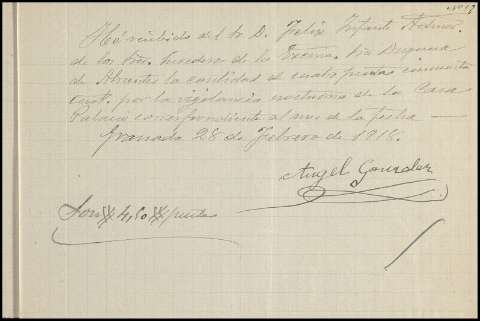 Nº 19
He recibido del Sr. D. Felix Infante Admor.
de los Sres. herederos de la Excma. Sra Duquesa
de Abrantes la cantidad de cuatro pesetas cincuenta
cent. por la vigilancia nocturna de la Casa
Palacio correspondiente al mes de la fecha
Granada 28 de Febrero de 1918.
Angel Gonzalez
Son # 4,50 # pesetas